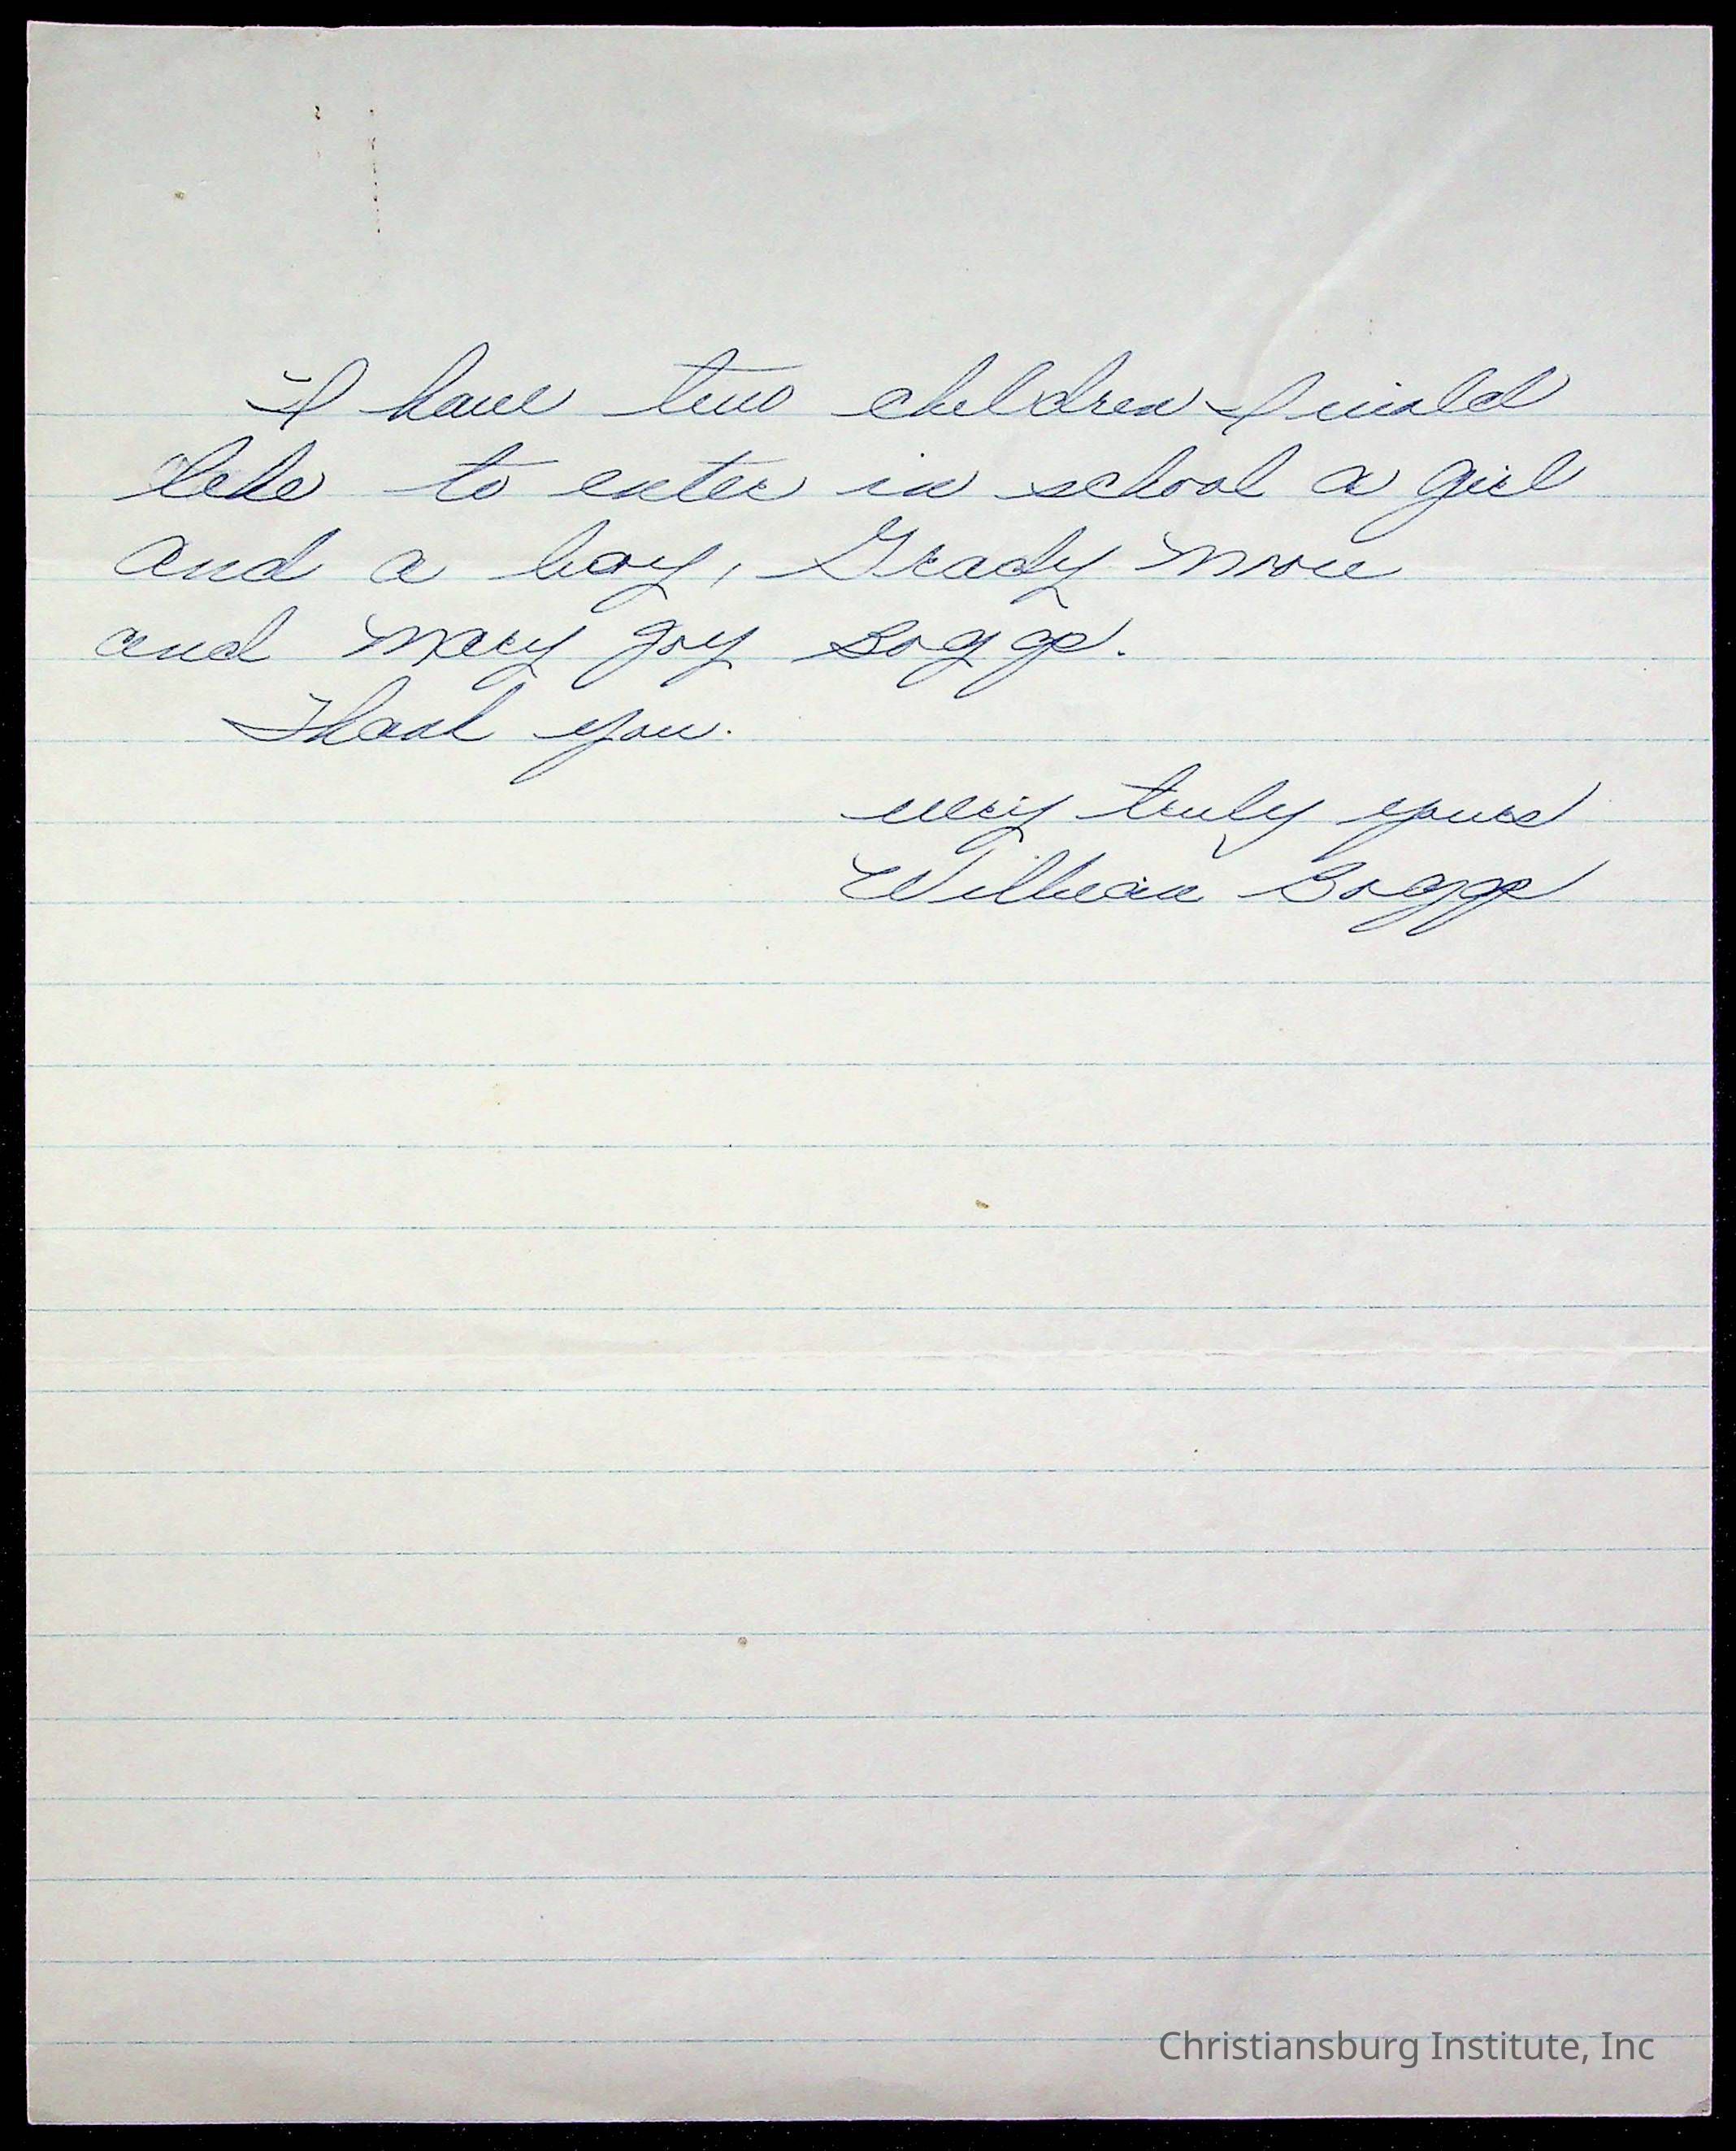 I have two children I would
like to enter in school a girl
and a boy, Grady
and Mary Joy Boggs.
Thank you.
very truly yours
William Boggs
Christiansburg Institute, Inc